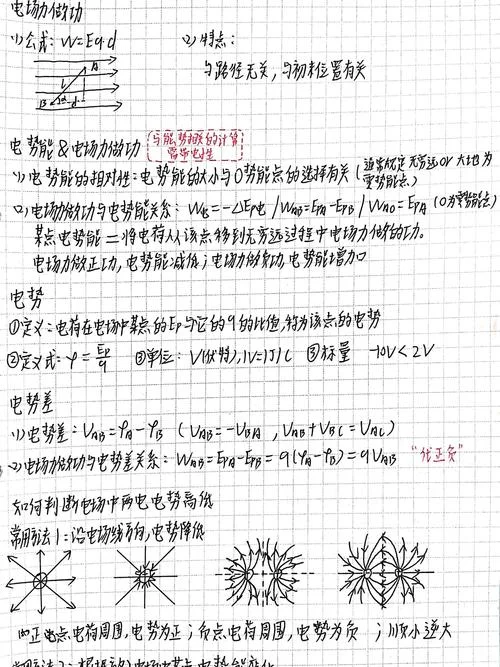 电场力做功
(1)公式：W=Eq·d
(2)特点：
与路径无关，与初末位置有关
A
l
B
d
电势能&电场力做功
与能、势相关的计算
需带电性
(1)电势能的相对性：电势能的大小与0势能点的选择有关（通常假定无穷远or大地为
零势能点）
(2)电场力做功与电势能关系：W电=-△Ep电 / WAB=EPA-EPB / WAO=EPA (O为零势能点)
某点电势能=将电荷从该点移到无穷远过程中电场力做的功。
电场力做正功，电势能减低；电场力做负功，电势能增加
电势
①定义：电荷在电场中某点的Ep与它的q的比值，称为该点的电势
②定义式：φ=Ep/q ③单位：V(伏特)，1V=1J/C ③标量 -10V<2V
电势差
(1)电势差：UAB=φA-φB (UAB=-UBA，UAB+UBC=UAC)
(2)电场力做功与电势差关系：WAB=EPA-EPB=q(φA-φB)=qUAB “代正负”
如何判断电场中两点电势高低
常用方法1：沿电场线方向，电势降低
正点电荷周围，电势为正；负点电荷周围，电势为负；顺小逆大